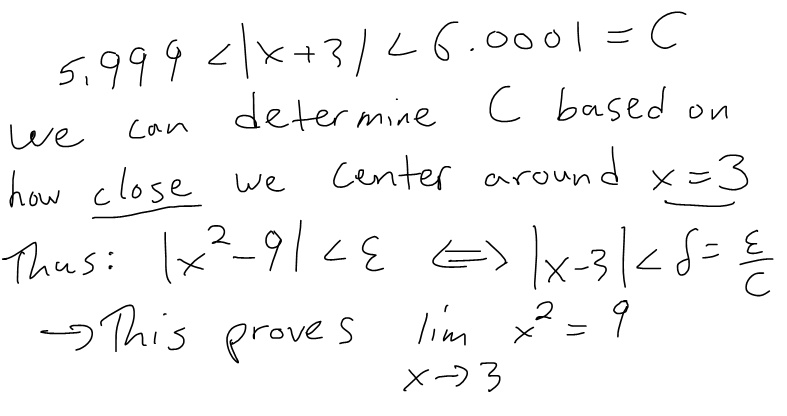 5.999 < |x+3| < 6.0001 = C
we can determine C based on
how close we center around x = 3
Thus: |x²-9| < ε ⟺ |x-3| < δ = ε/C
→ This proves lim x² = 9
x→3